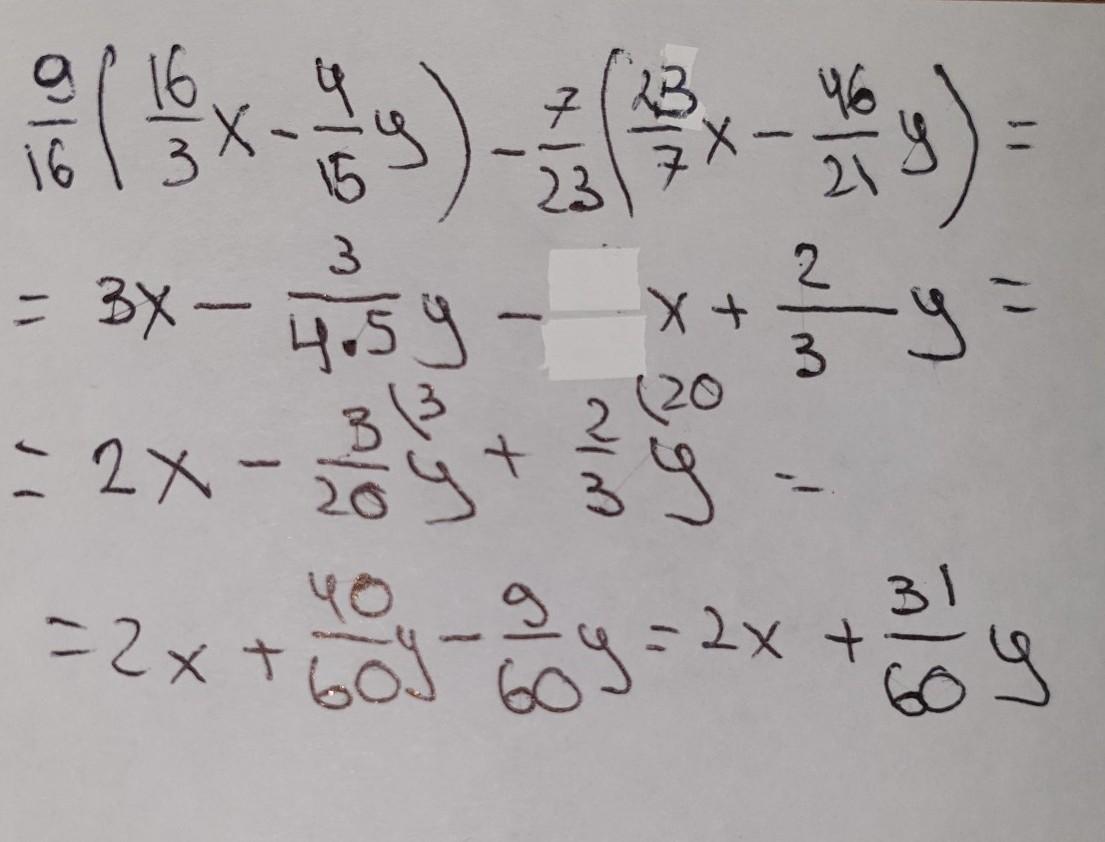 9/16 (16/3 x - 4/15 y) - 7/23 (23/7 x - 46/21 y) =
= 3x - 3/(4.5) y - x + 2/3 y =
= 2x - 3/20 (3 y + 2/3 (20 y =
= 2x + 40/60 y - 9/60 y = 2x + 31/60 y